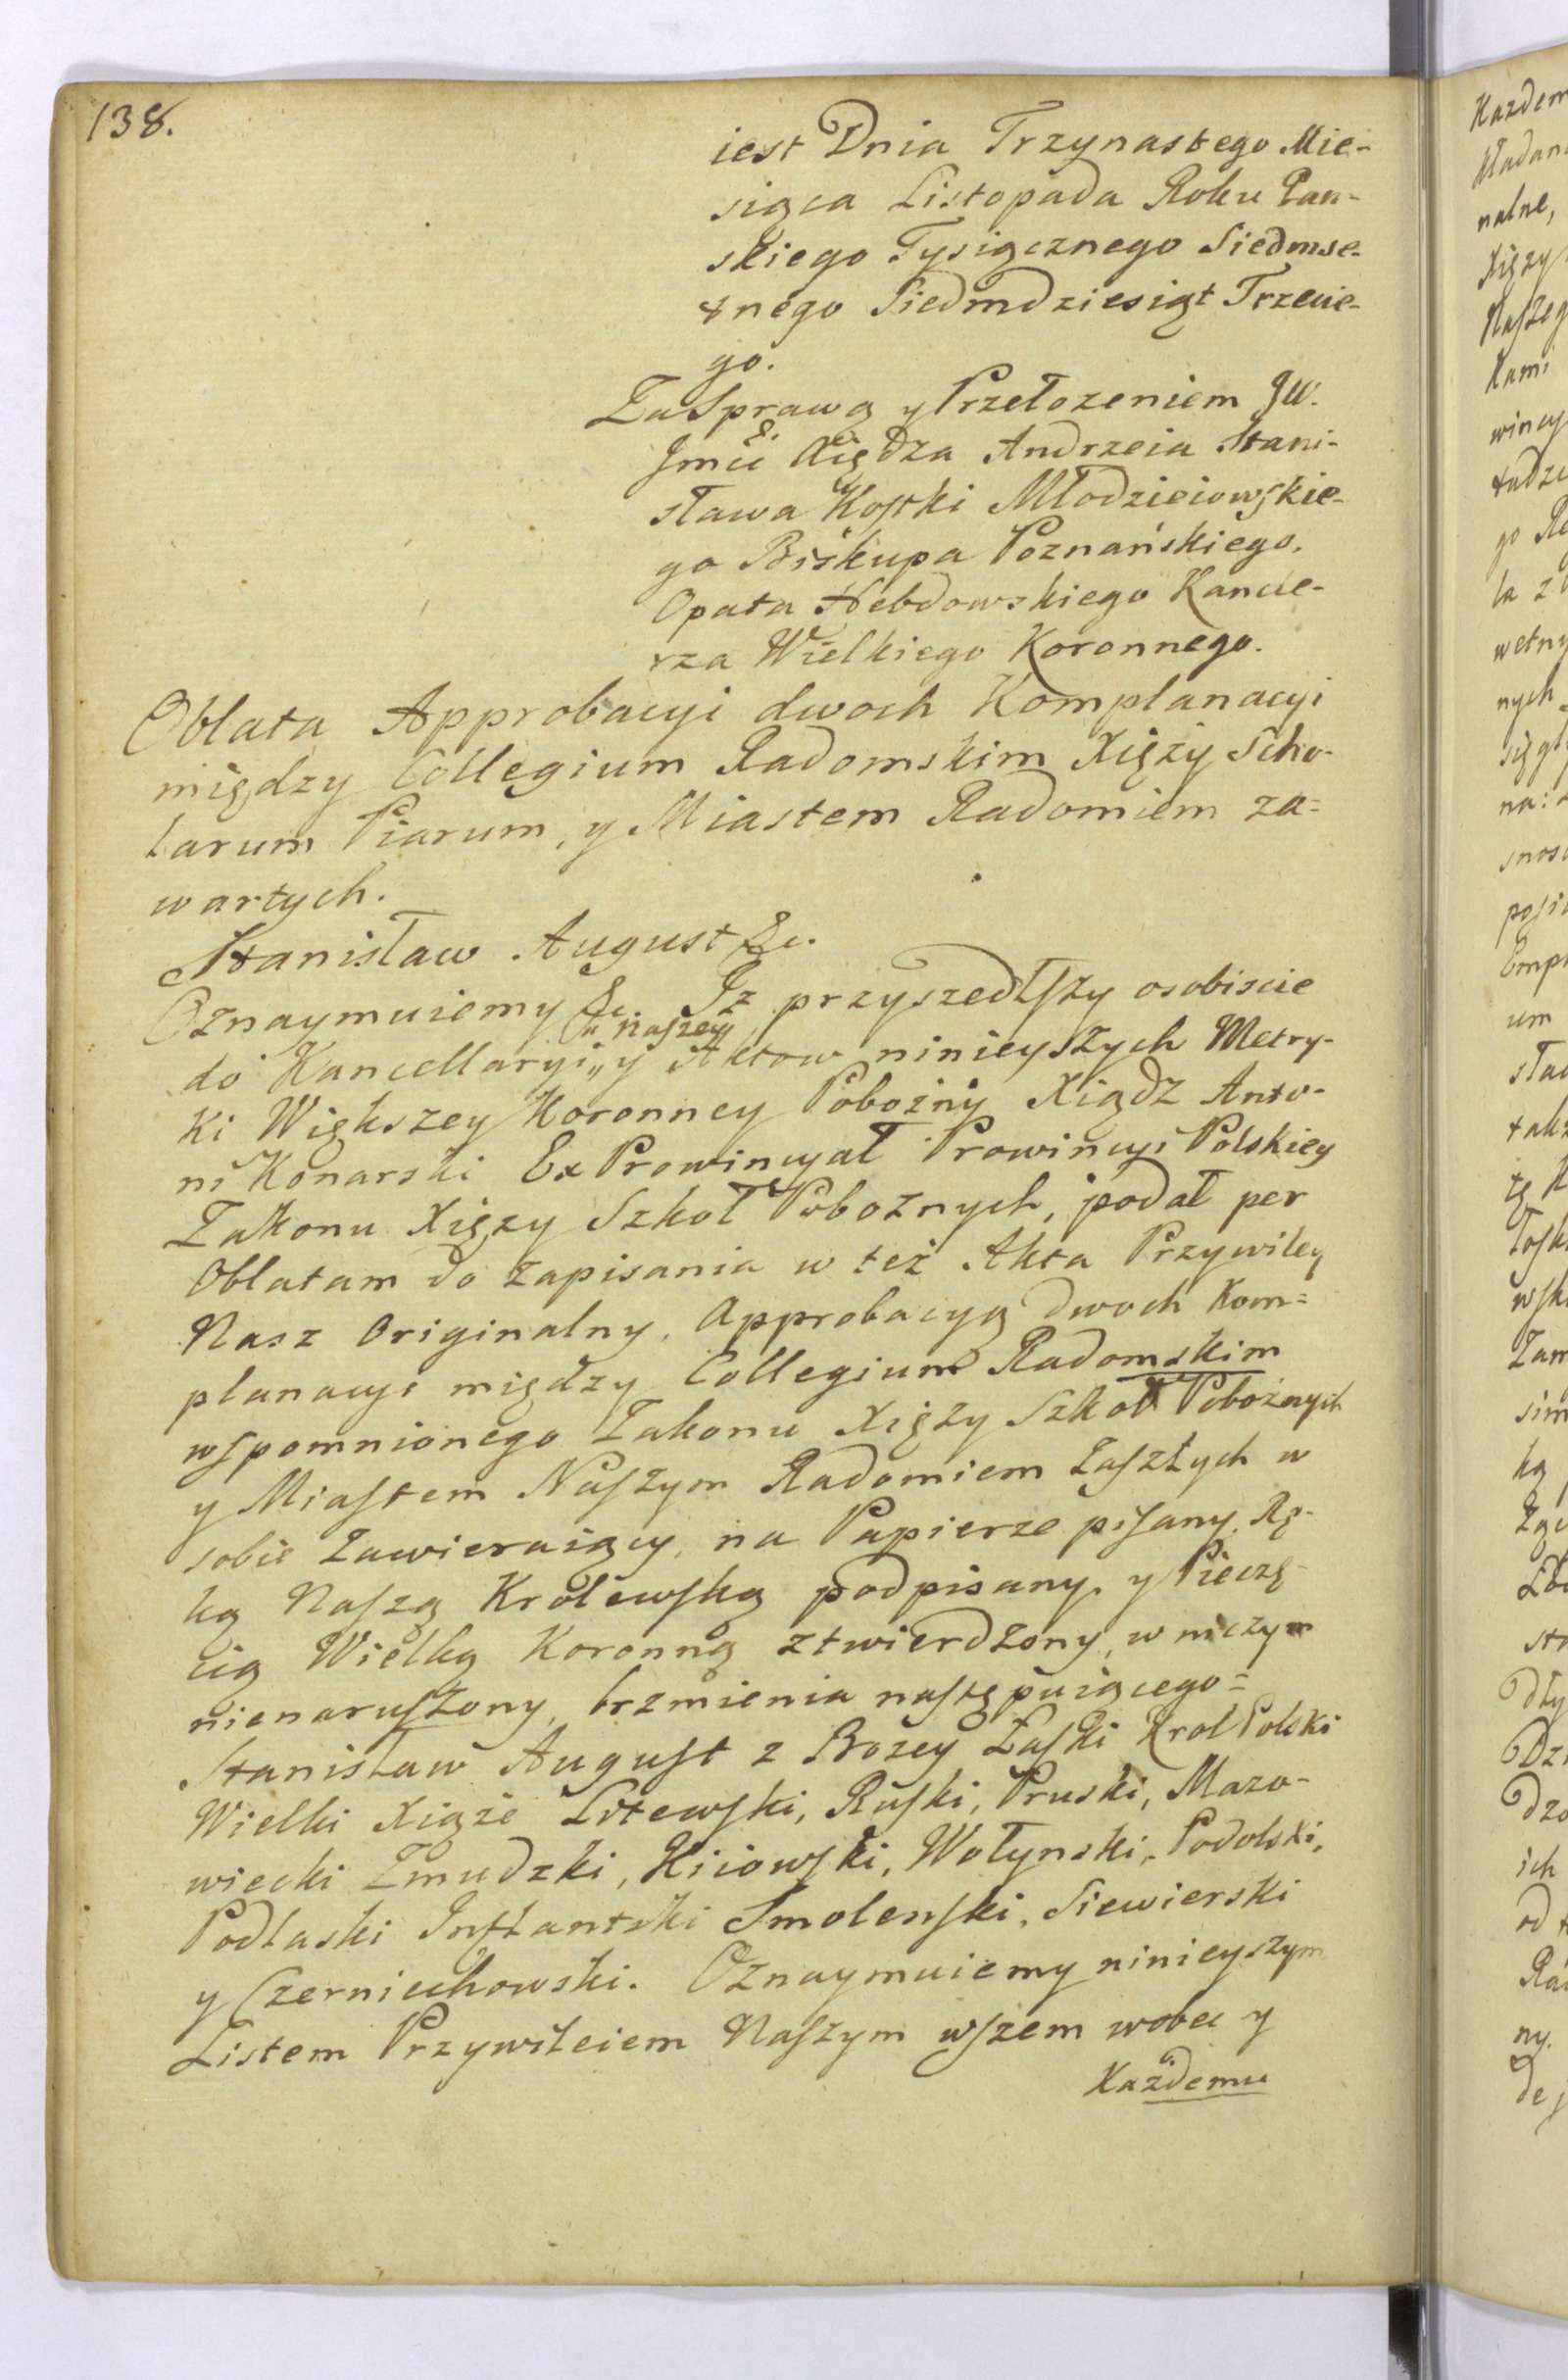 138.
iest Dnia Trzynastego Mie-
siąca Listopada Roku Pan-
skiego Tysiącznego Siedmse-
tnego Siedmdziesiąt Trzecie-
go.
Za Sprawą y Przełozeniem JW.
Jmci Xiędza Andrzeia Stani-
sława Kostki Młodzieiowskie-
go Biskupa Poznańskiego,
Opata Hebdowskiego Kancle-
rza Wielkiego Koronnego.
Oblata Approbacyi dwoch Komplanacyi
między Collegium Radomskim Xięży Scho-
larum Piarum, y Miastem Radomiem za=
wartych.
Stanisław August &c.
Oznaymuiemy &c. Iz przyszedłszy osobiscie
do Kancellaryi „y Aktow ninieyszych Metry-
„ Naszey
ki Większey Koronney Pobożny Xiądz Anto-
ni Konarski Ex Prowincyał Prowincyi Polskiey
Zakonu Xięzy Szkoł Poboznych, podał per
Oblatam do zapisania w też Akta Przywiley
Nasz Originalny, Approbacyą dwoch Kom=
planacyi między Collegium Radomskim
wspomnionego Zakonu Xięży Szkoł Pobożnych
y Miastem Naszym Radomiem Zaszłych w
sobie Zawieraiący, na Papierze pisany, Rę-
ką Naszą Krolewską podpisany, y Pieczę-
cią Wielką Koronną ztwierdzony, w niczym
nienaruszony, brzmienia następuiącego=
Stanisław August z Bozey Łaski Krol Polski
Wielki Xiąże Litewski, Ruski, Pruski, Mazo-
wiecki Zmudzki, Kiiowski, Wołynski, Podolski,
Podlaski Inflantski Smolenski, Siewierski
y Czerniechowski. Oznaymuiemy ninieyszym
Listem Przywileiem Naszym wszem wobec y
Każdemu